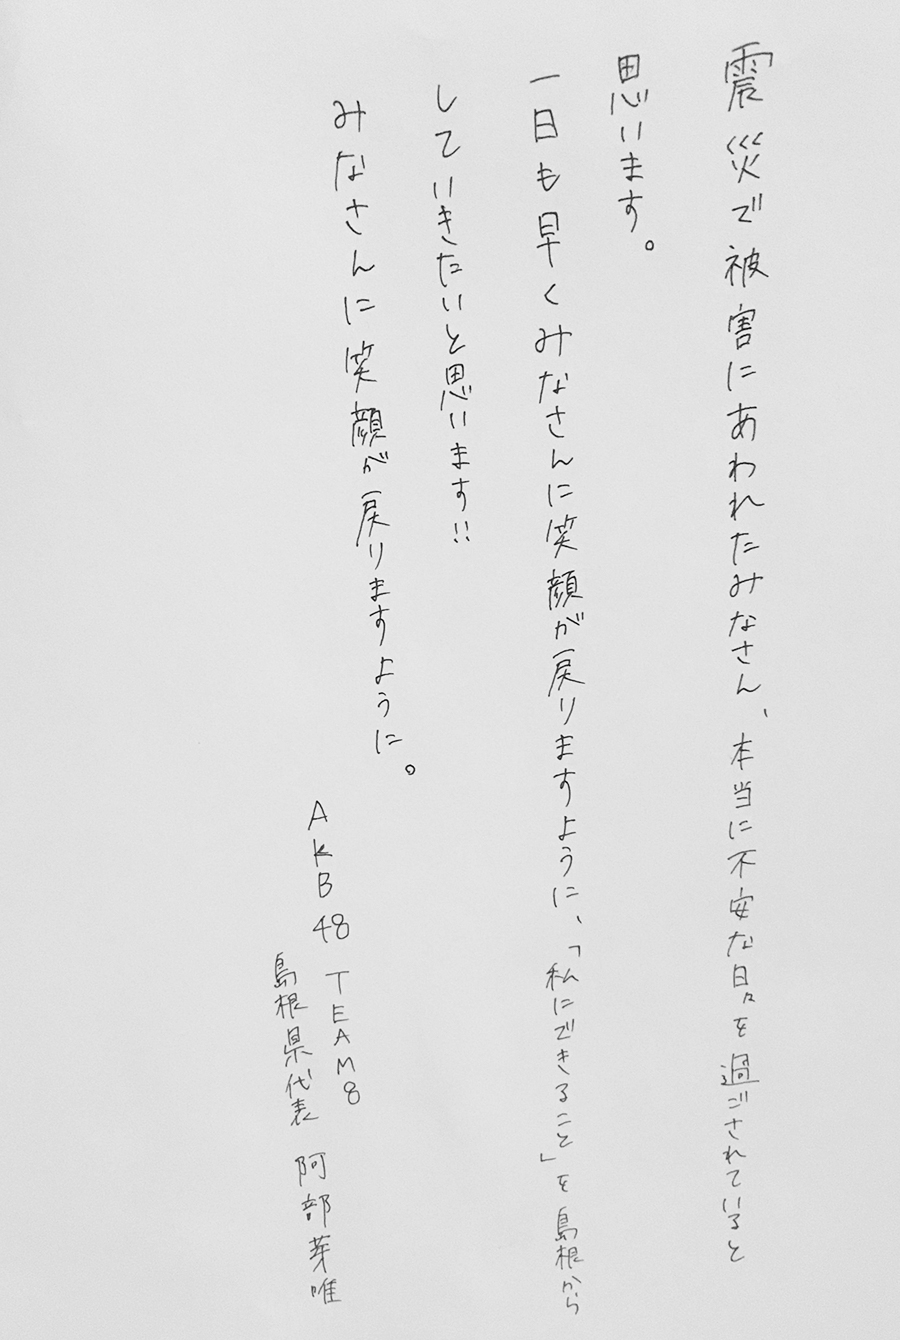 震災で被害にあわれたみなさん、本当に不安な日々を過ごされていると
思います。
一日も早くみなさんに笑顔が戻りますように、「私にできること」を島根から
していきたいと思います!!
みなさんに笑顔が戻りますように。
AKB48 TEAM8
島根県代表 阿部芽唯